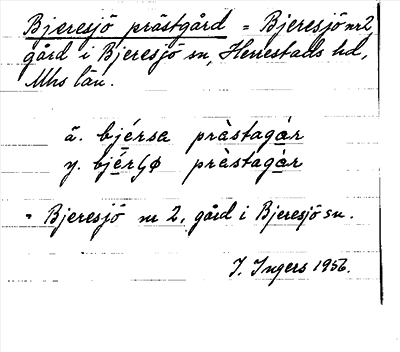 Bjeresjö prästgård = Bjeresjö nr 2,
gård i Bjeresjö sn, Herrestads hd,
Mhs län.
ä. bjérsa pràstagár
y. bjérʃø pràstagár
= Bjeresjö nr 2, gård i Bjeresjö sn.
I. Ingers 1956.